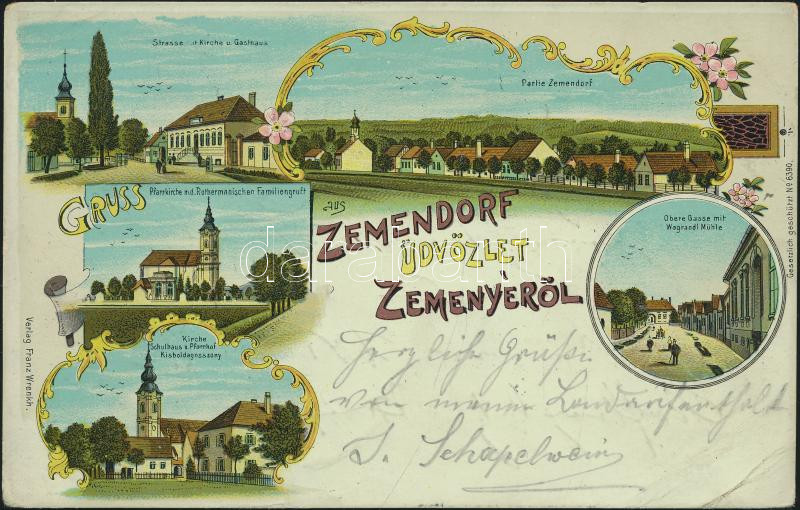 Strasse mit Kirche u. Gasthaus
Partie Zemendorf
GRUSS
Pfarrkirche m.d. Rothermanischen Familiengruft
AUS
ZEMENDORF
ÜDVÖZLET
ZEMENYÉRÖL
Obere Gasse mit
Wagrandl Mühle
Kirche
Schulhaus u. Pfarrhof
Kisboldogasszony
Verlag Franz Wrenkh.
Gesetzlich geschützt No 6390.
Herzliche Grüße
von meinem Landaufenthalt
darabanth